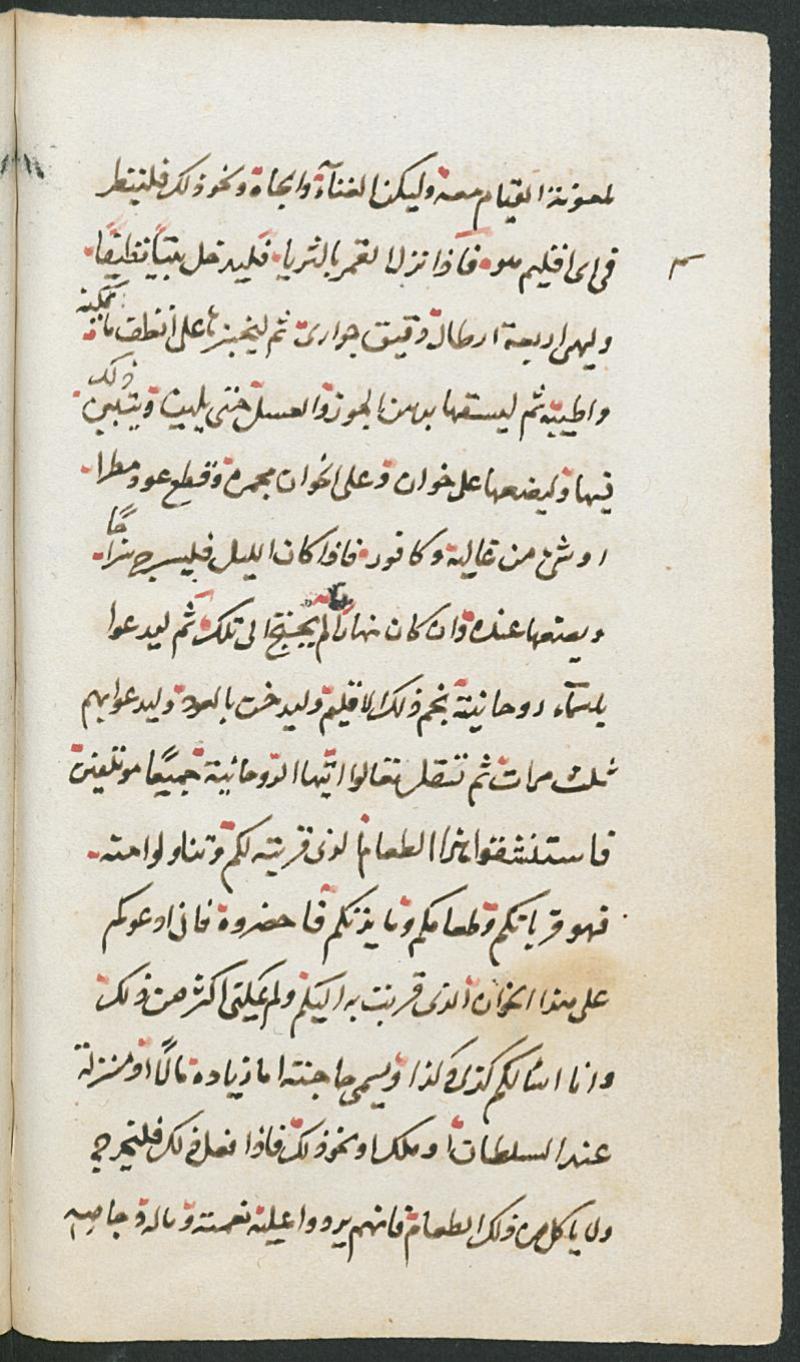 لمعونة القيام معه وليكن الغناء والجاه ونحو ذلك فلينظر
فى اى اقليم هو فاذا نزل القمر بالثريا فليدخل بيتًا نظيفًا
وليهيئ اربعة ارطال دقيق حوارى ثم ليخبزها على انظف ما يمكنه
واطيبه ثم ليسقها بدهن الجوز والعسل حتى يلين ويتبين ذلك
فيها وليضعها على خوان وعلى الخوان مجمرة وقطع عود مطرا
او شئ من غالية وكافور فاذا كان الليل فليسرج سراجًا
ويضعها عنده وان كان نهارًا لم يحتج الى تلك ثم ليدعوا
باسماء روحانية نجم ذلك الاقليم وليدخن بالعود وليدعوا بهم
ثلث مرات ثم تقل تعالوا ايتها الروحانية جميعًا موتلفين
فاستنشقوا هذا الطعام الذى قربته لكم وتناولوا منه
فهو قرباتكم وطعامكم وما يذنكم فاحضروه فانى ادعوكم
على هذا الخوان الذى قربت به اليكم ولم يمكنى اكثر من ذلك
وانا اسالكم كذى وكذا ويسمى حاجته اما زيادة مالًا او منزلة
عند السلطان او ملك او نحو ذلك فاذا فعل ذلك فليخرج
ولا ياكل من ذلك الطعام فانهم يردوا عليه نعمته وماله وجاهه